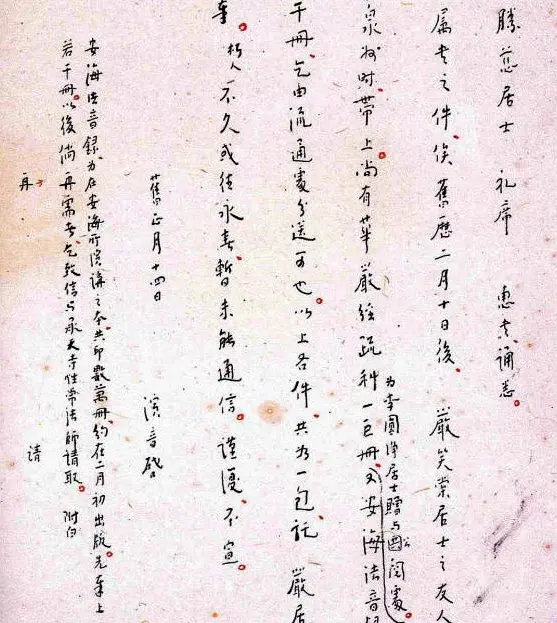 勝慈居士 礼席 惠書誦悉。
属書之件、俟舊歷二月十日後、嚴笑棠居士之友人
泉州时、帶上。尚有華嚴經疏科一巨冊、又安海法音
為李圓淨居士贈与閱處。
干冊、乞由流通處分送可也。以上各件共为一包、託嚴居
奉。朽人不久或往永春、暫未能通信。謹復、不宣。
舊正月十四日 演音啓
安海法音錄、为在安海所演講之本。共印數萬冊、約在二月初出版。先奉上
若干冊。以後倘再需者、乞致信与承天寺性常法師請取。附白
再
请